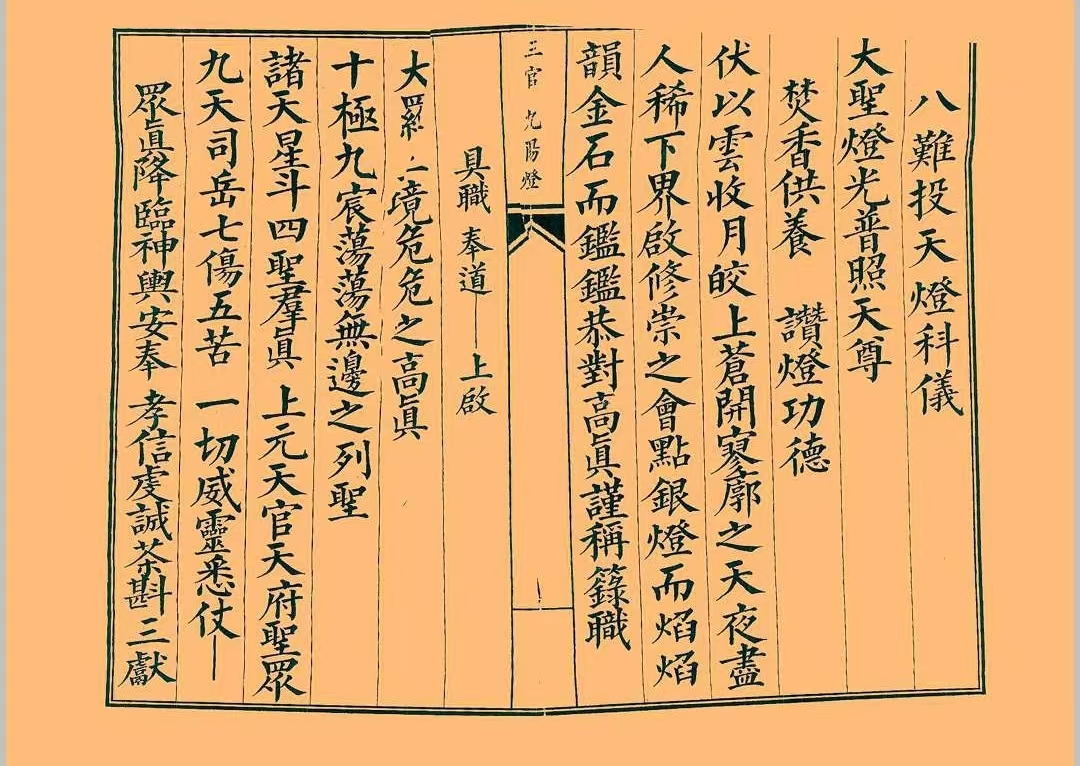 八難投天燈科儀
大聖燈光普照天尊
焚香供養 讚燈功德
伏以雲收月皎上蒼開寥廓之天夜盡
人稀下界啟修崇之會點銀燈而焰焰
韻金石而鑑鑑恭對高眞謹稱籙職
三官九陽燈
一
具職 奉道——上啟
大羅境危危之高眞
十極九宸蕩蕩無邊之列聖
諸天星斗四聖羣眞 上元天官天府聖眾
九天司岳七傷五苦 一切威靈悉仗——
眾眞降臨神輿安奉 孝信虔誠茶斟三獻